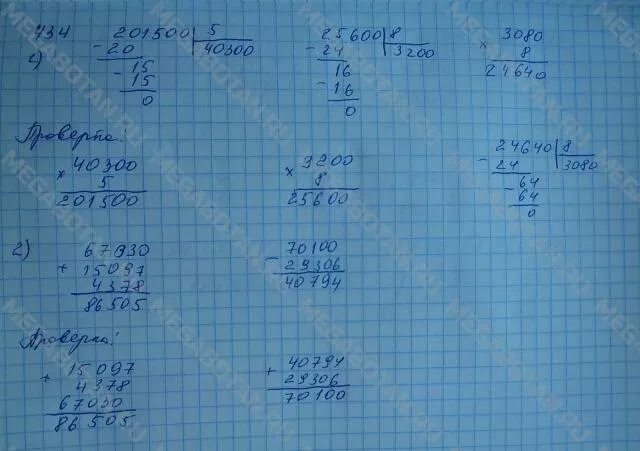 734
1)
201500 | 5
- 20 40300
- 15
15
0
25600 | 8
- 24 3200
16
- 16
0
× 3080
8
24640
Проверка:
× 40300
5
201500
× 3200
8
25600
- 24640 | 8
24 3080
- 64
64
0
2)
67030
+ 15097
4378
86505
- 70100
29306
40794
Проверка:
+ 15097
4378
67030
86505
+ 40794
29306
70100
MEGABOTAN.RU